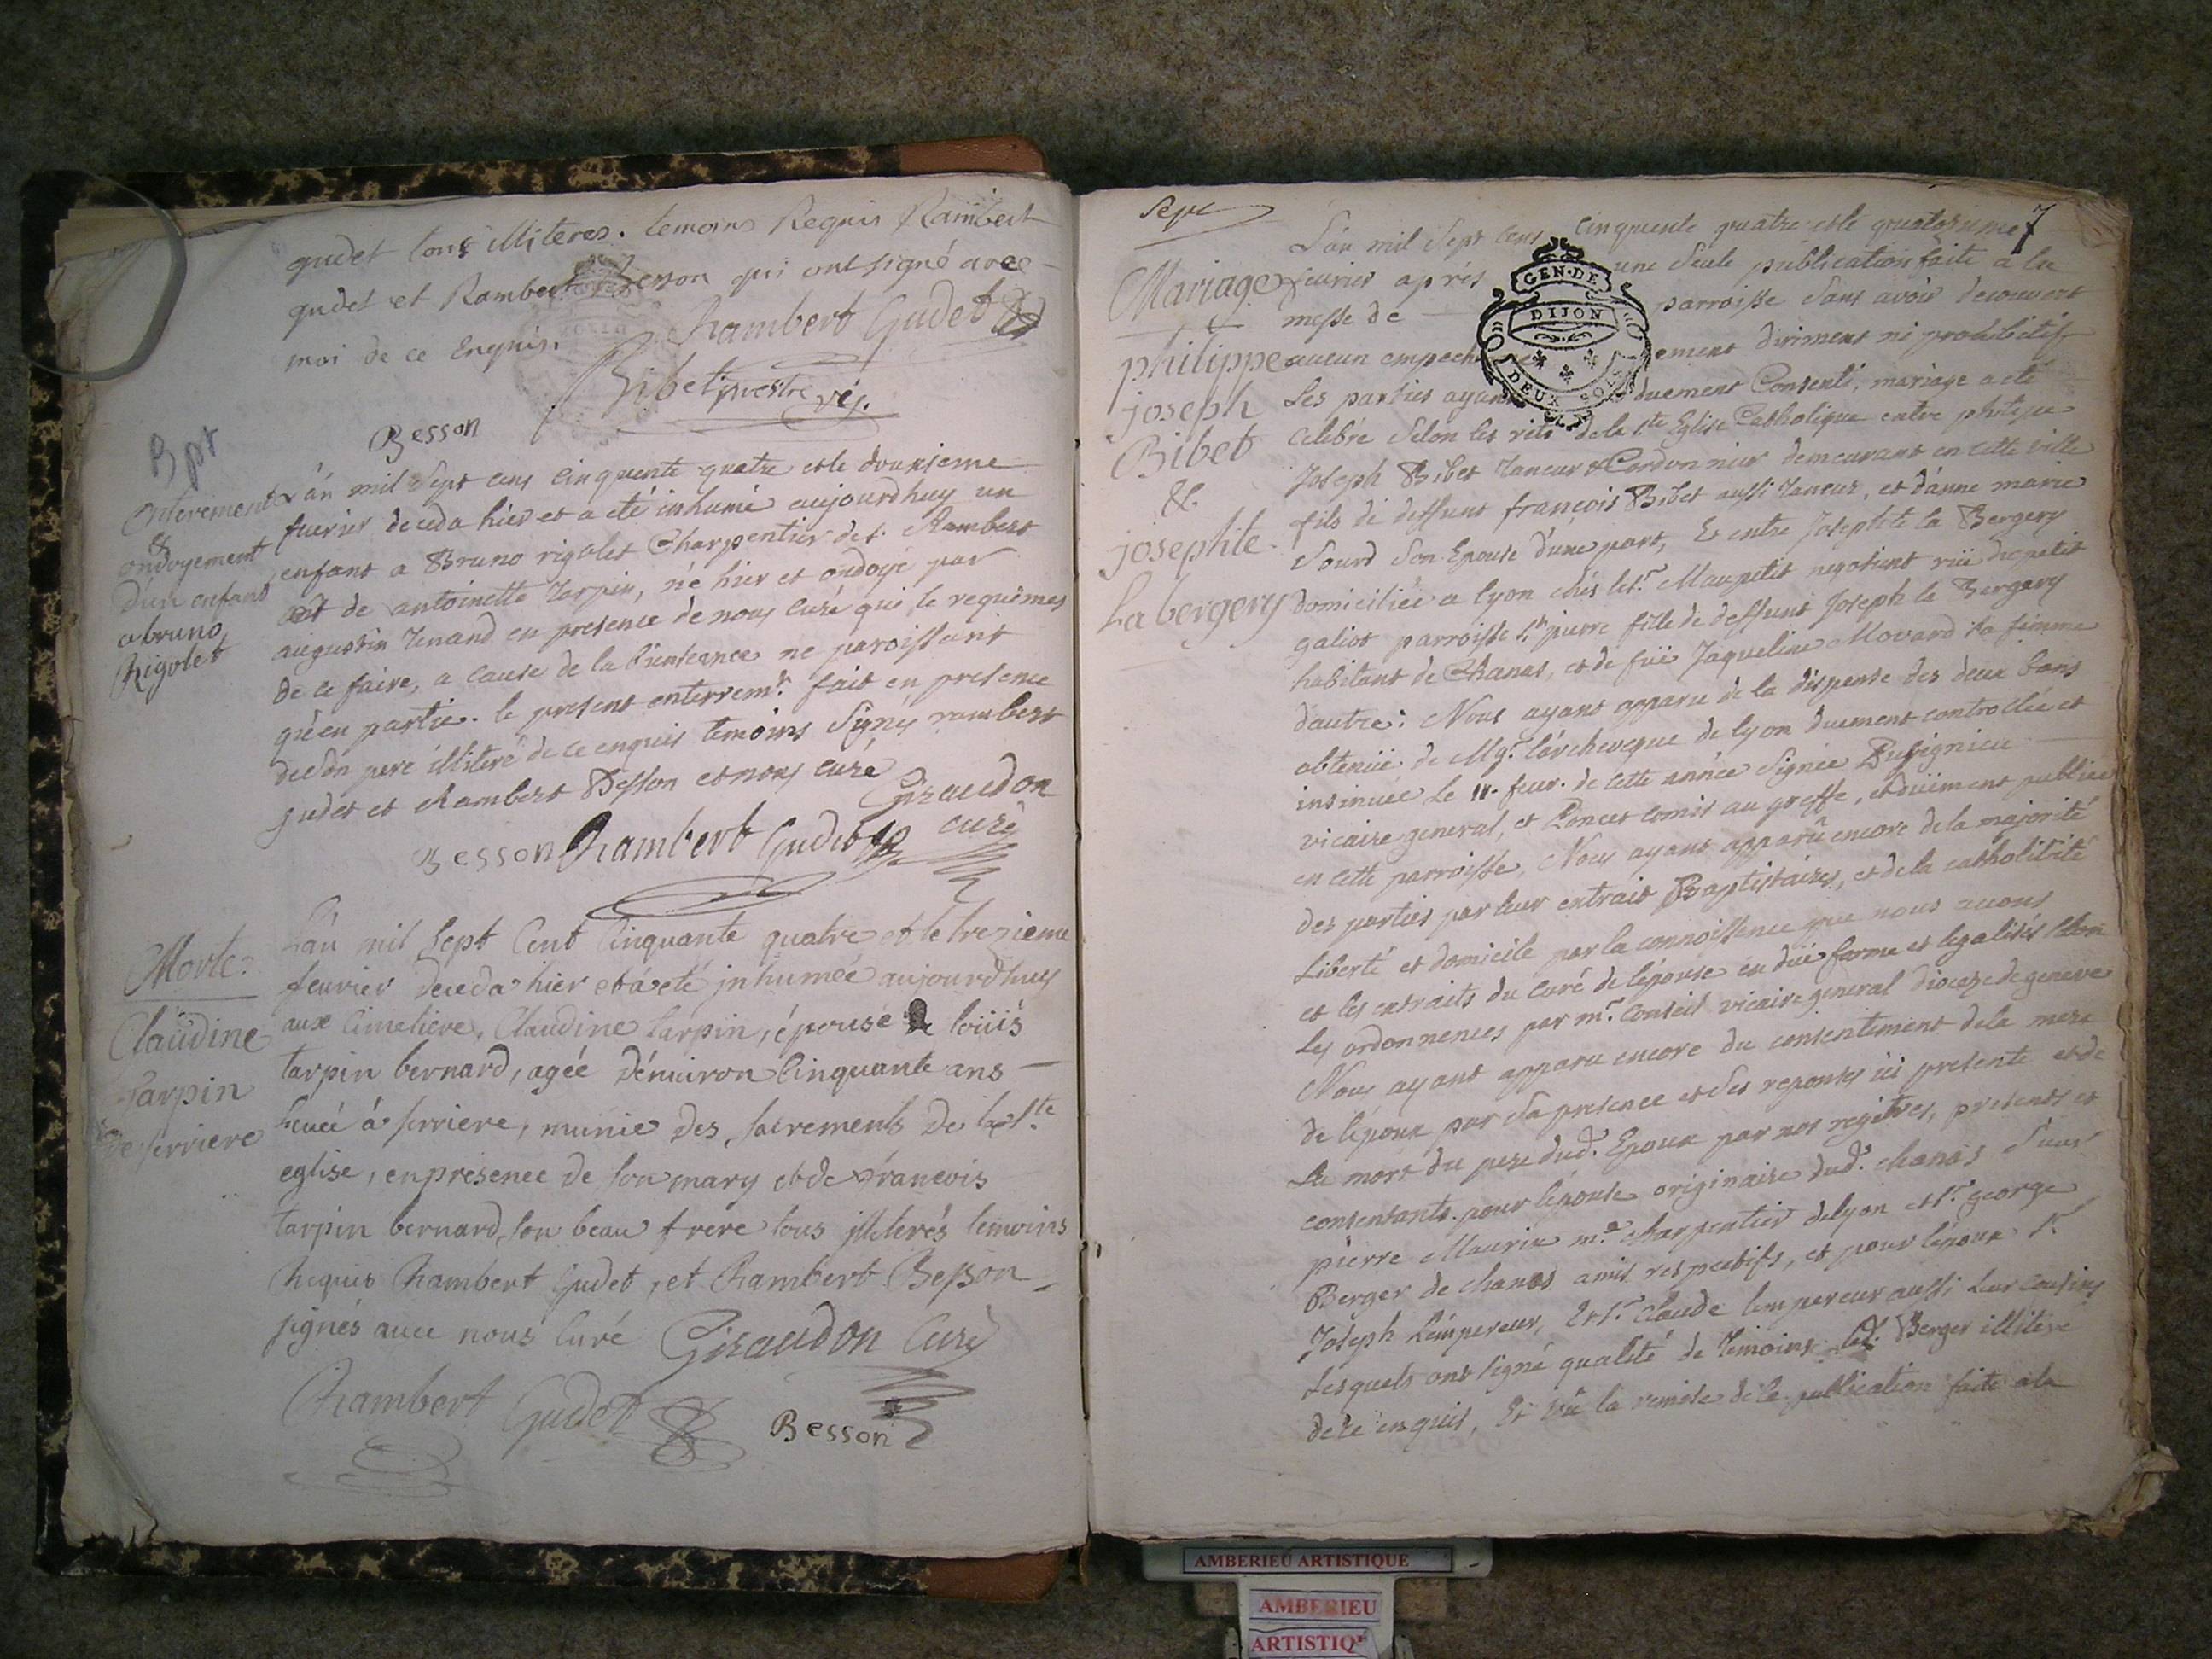 gudet tous illiteres. temoins Requis Rambert
gudet et Rambert Besson qui ont signé avec
moi de ce Enquis.
Rambert Gudet
Bibet prestre vic.
Besson
Bpt
Enterement
&
ondoyement
d'un enfant
a bruno
Rigolet
L'an mil sept cens cinquente quatre et le douzieme
fevrier deceda hier et a eté inhumé aujourdhuy un
enfant a Bruno rigolet Charpentier de st. Rambert
et de antoinette Tarpin, né hier et ondoyé par
augustin Tenand en presence de nous curé qui le requimes
de ce faire, a cause de la bienseance ne paroissant
qu'en partie. le present enterremt. fait en presence
de son pere illiteré de ce enquis temoins signés rambert
gudet et Rambert Besson et nous curé
Giraudon
curé
Besson Rambert Gudet
Morte
Claudine
Tarpin
de serriere
L'an mil sept Cent Cinquante quatre et le trezieme
fevrier deceda hier et a eté inhumée aujourdhuy
aux Cimetiere, Claudine tarpin, épouse de loüis
tarpin bernard, agée d'énviron Cinquante ans
à serriere, munie des sacrements de la ste.
eglise, en presence de son mary et de françois
tarpin bernard son beau frere tous illiterés temoins
Requis Rambert Gudet, et Rambert Besson
signés avec nous Curé Giraudon Curé
Rambert Gudet
Besson
Sept
7
Mariage
philippe
joseph
Bibet
&
josephte
La bergery
GEN. DE
DIJON
DEUX SOLS
L'an mil sept cens cinquente quatre et le quatorzieme
fevrier après une seule publication faite a la
messe de parroisse sans avoir decouvert
aucun empechement diriment ni prohibitif
Les parties ayant duement Consenti, mariage a eté
celebré selon les rits de la ste Eglise Catholique entre philippe
Joseph Bibet Taneur & Cordonnier demeurant en cette ville
fils de deffunt françois Bibet aussi Taneur, et d'anne marie
Sourd son Epouse d'une part, Et entre Josephte la Bergery
domiciliée a lyon chés le sr. Maupetit negotient rüe du petit
galiot parroisse st pierre fille de deffunt Joseph la Bergery
habitant de Chanas, et de füe Jaqueline Movard sa femme
d'autre: Nous ayant apparu de la dispense des deux bans
obtenüe de Mgr. l'archeveque de lyon duement controllée et
insinuée Le 11. fevr. de cette année Signée Pusignieu
vicaire general, et Poncet comis au greffe, et düement publiée
en cette parroisse, Nous ayant apparû encore de la majorité
des parties par leur extrait Baptistaires, et de la catholicité
Liberté et domicile par la connoissence que nous avons
et les extraits du curé de l'épouse en düe forme et legalisés selon
Les ordonnences par mr. Conseil vicaire general dioceze de geneve
Nous ayant apparu encore du consentement de la mere
de l'époux par sa presence et ses reponses ici presente et de
La mort du pere dud. Epoux par nos regitres, presents et
consentants. pour l'épouse originaire dud. chanas sieur
pierre Maurin md. charpentier de lyon et sr. george
Berger de chanas amis respectifs, et pour l'epoux sr.
Joseph L'émpereur, Et sr. Claude L'empereur aussi Leur cousins
Lesquels ont signé qualité de Temoins led. Berger illiteré
de ce enquis, Et vû la remise de la publication faite a la
AMBERIEU ARTISTIQUE
AMBERIEU
ARTISTIQ